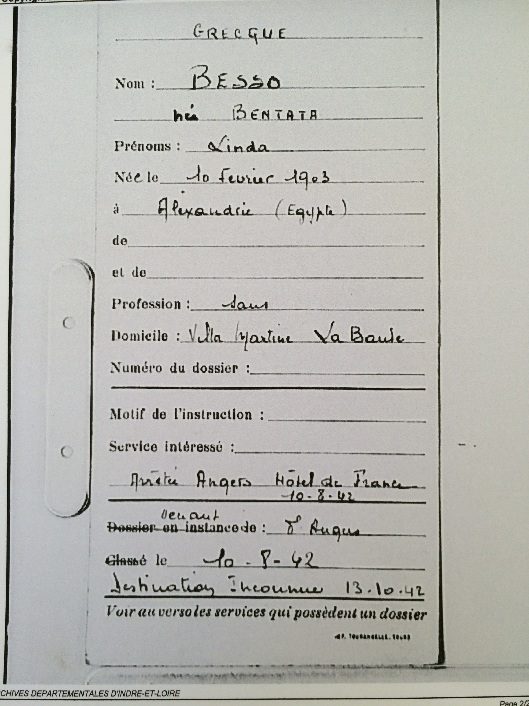 GRECQUE
Nom : BESSO
née BENTATA
Prénoms : Linda
Née le 10 février 1903
à Alexandrie (Egypte)
de
et de
Profession : sans
Domicile : Villa Martine La Baule
Numéro du dossier :
Motif de l'instruction :
Service intéressé :
Arrêté Angers Hôtel de France
10-8-42
Venant
Dossier en instance de : d'Angers
Classé le 10-8-42
Destination Inconnue 13.10.42
Voir au verso les services qui possèdent un dossier
IMP. TOURANGELLE, TOURS
CHIVES DEPARTEMENTALES D'INDRE-ET-LOIRE
Page 2/2